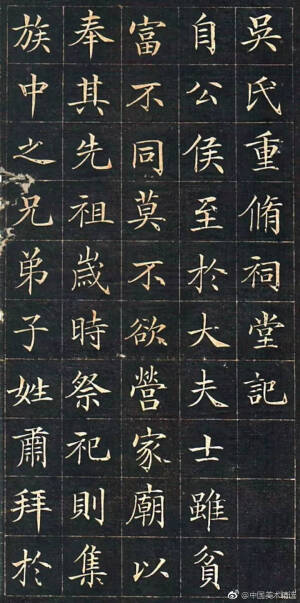 吳氏重脩祠堂記
自公侯至於大夫士雖貧
富不同莫不欲營家廟以
奉其先祖歲時祭祀則集
族中之兄弟子姓肅拜於
@中国美术精选